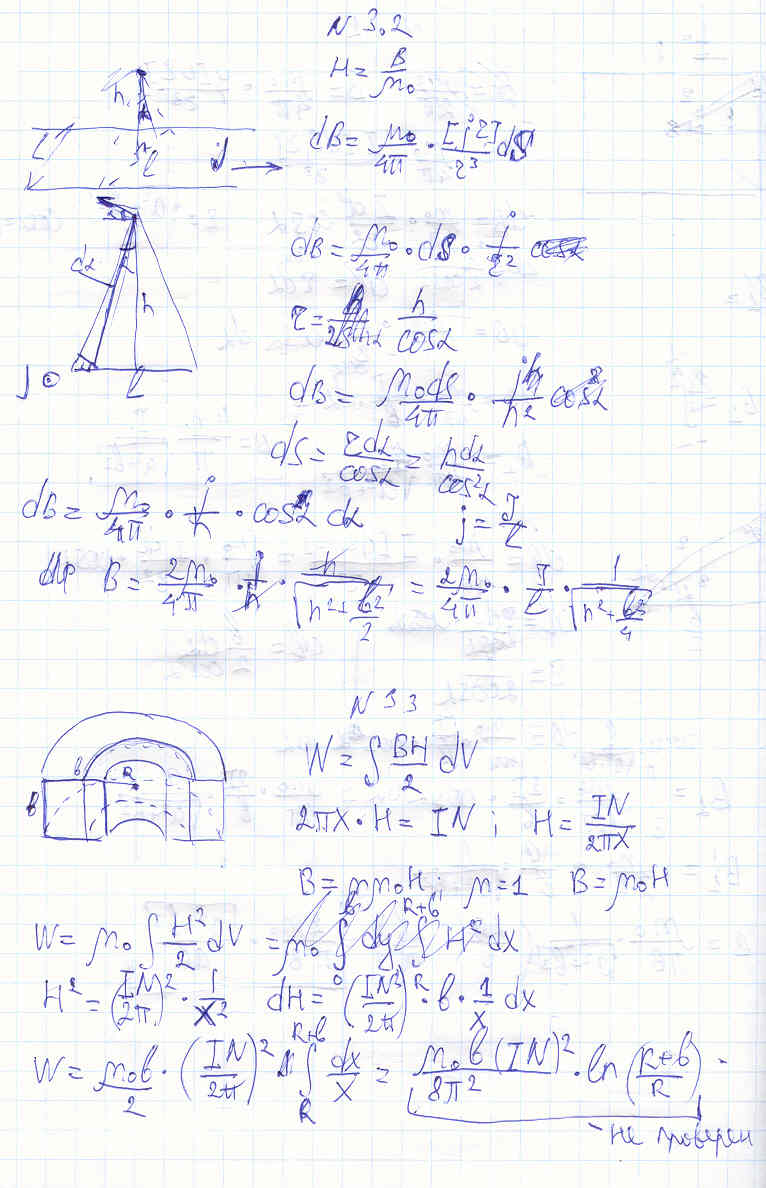 N 3.2
H = B/μ₀
h
l
j →
dB = μ₀/4π · [j r]/r³ dS
dα
α
h
l
j ⊙
dB = μ₀/4π · dS · j/r²
r = h/cosα
dB = μ₀dS/4π · j/h² cos²α
dS = r dα/cosα = h dα/cos²α
dB = μ₀/4π · j/h · cosα dα
j = J/l
B = 2μ₀/4π · j/h · h/√(h²+l²/2) = 2μ₀/4π · J/l · 1/√(h²+l²/4)
N 3 3
в
в
R
W = ∫ BH/2 dV
2πx · H = IN ; H = IN/2πx
B = μμ₀H ; μ=1 B = μ₀H
W = μ₀ ∫ H²/2 dV = μ₀ ∫₀ᵇ dy ∫_R^{R+в} H² dx
H² = (IN/2π)² · 1/x² dH = (IN/2π)² · в · 1/x dx
W = μ₀в/2 · (IN/2π)² ∫_R^{R+в} dx/x = μ₀в(IN)²/8π² · ln(R+в/R) -
- не проверен